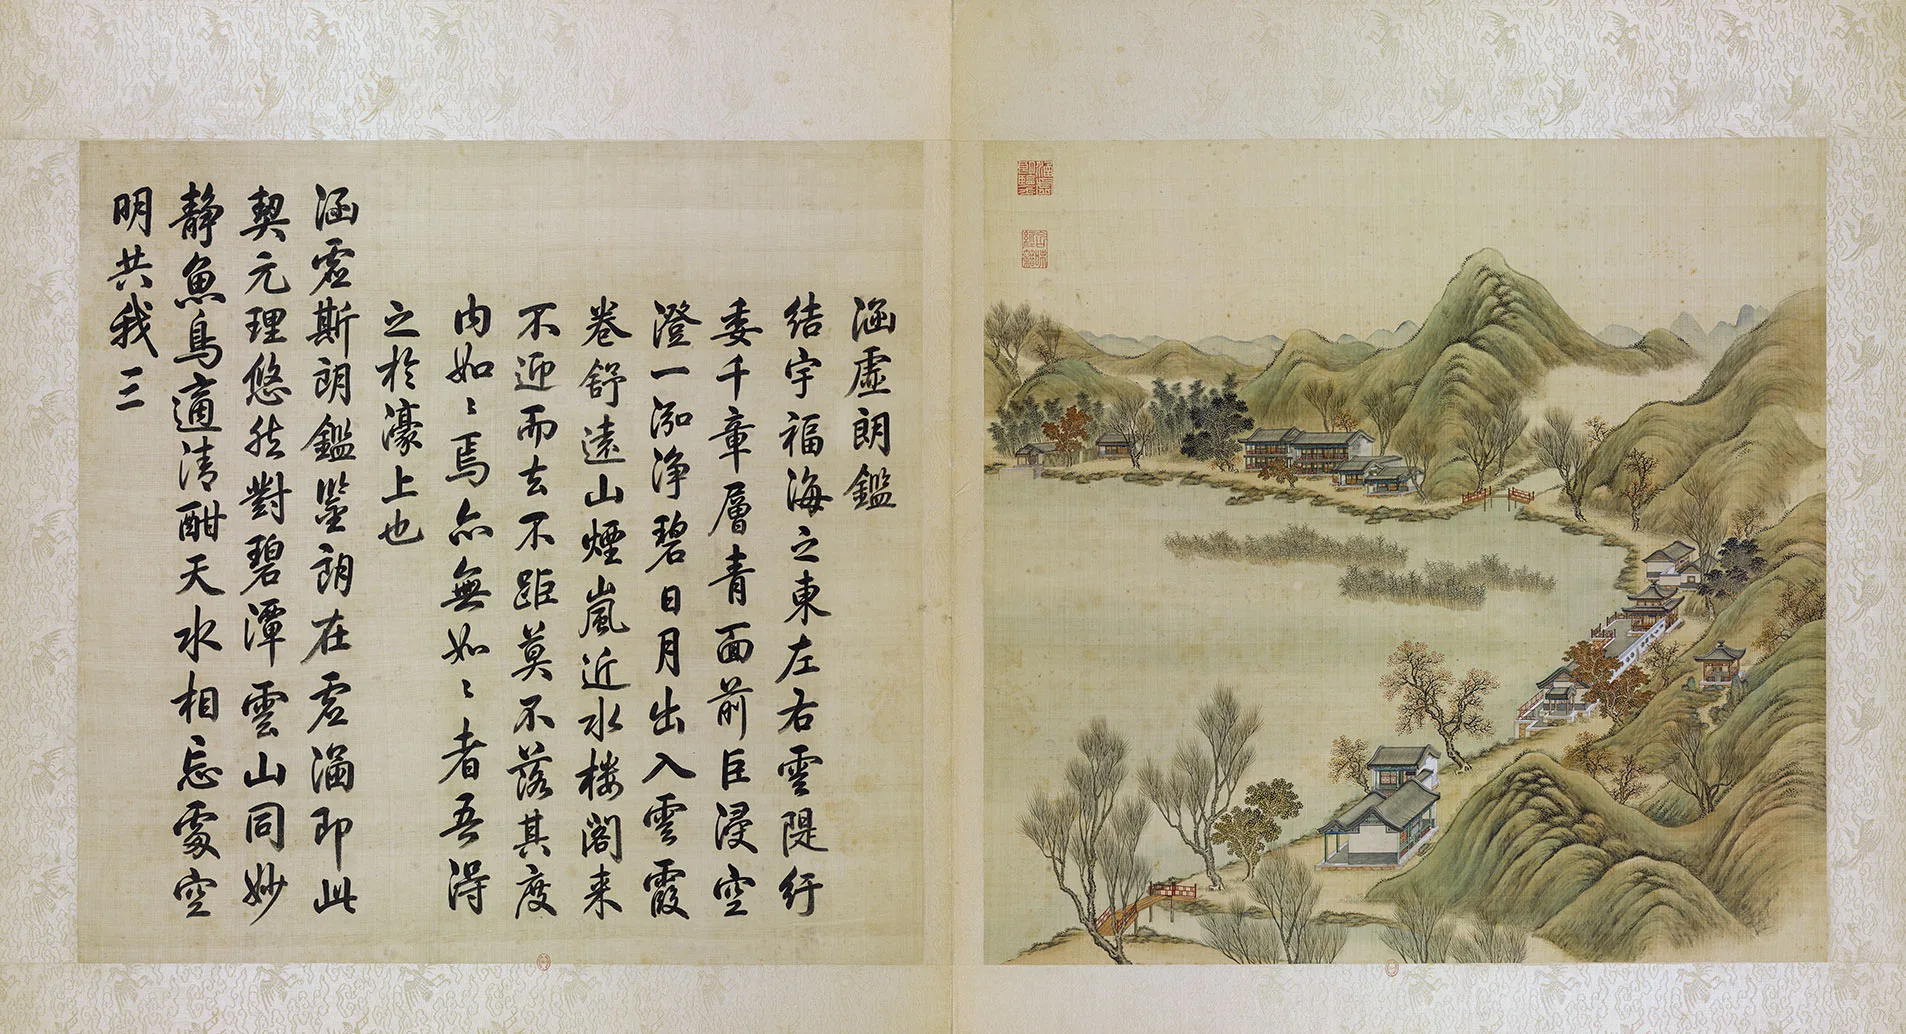 涵虛朗鑑
結宇福海之東左右雲隄紆
委千章層青面前巨浸空
澄一泓浄碧日月出入雲霞
卷舒遠山煙嵐近水楼閣来
不迎而去不距莫不落其度
内如〻焉亦無如〻者吾得
之於濠上也
涵虛斯朗鑑鋻朗在虛涵即此
契元理悠然對碧潭雲山同妙
静魚鳥適清酣天水相忘處空
明共我三